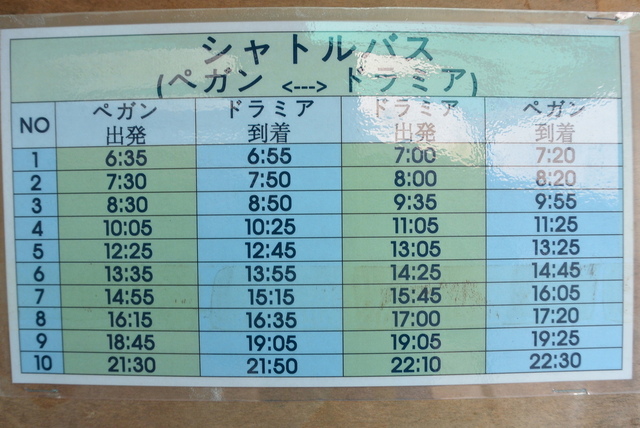 シャトルバス
(ペガン <---> ドラミア)
NO ペガン出発 ドラミア到着 ドラミア出発 ペガン到着
1 6:35 6:55 7:00 7:20
2 7:30 7:50 8:00 8:20
3 8:30 8:50 9:35 9:55
4 10:05 10:25 11:05 11:25
5 12:25 12:45 13:05 13:25
6 13:35 13:55 14:25 14:45
7 14:55 15:15 15:45 16:05
8 16:15 16:35 17:00 17:20
9 18:45 19:05 19:05 19:25
10 21:30 21:50 22:10 22:30